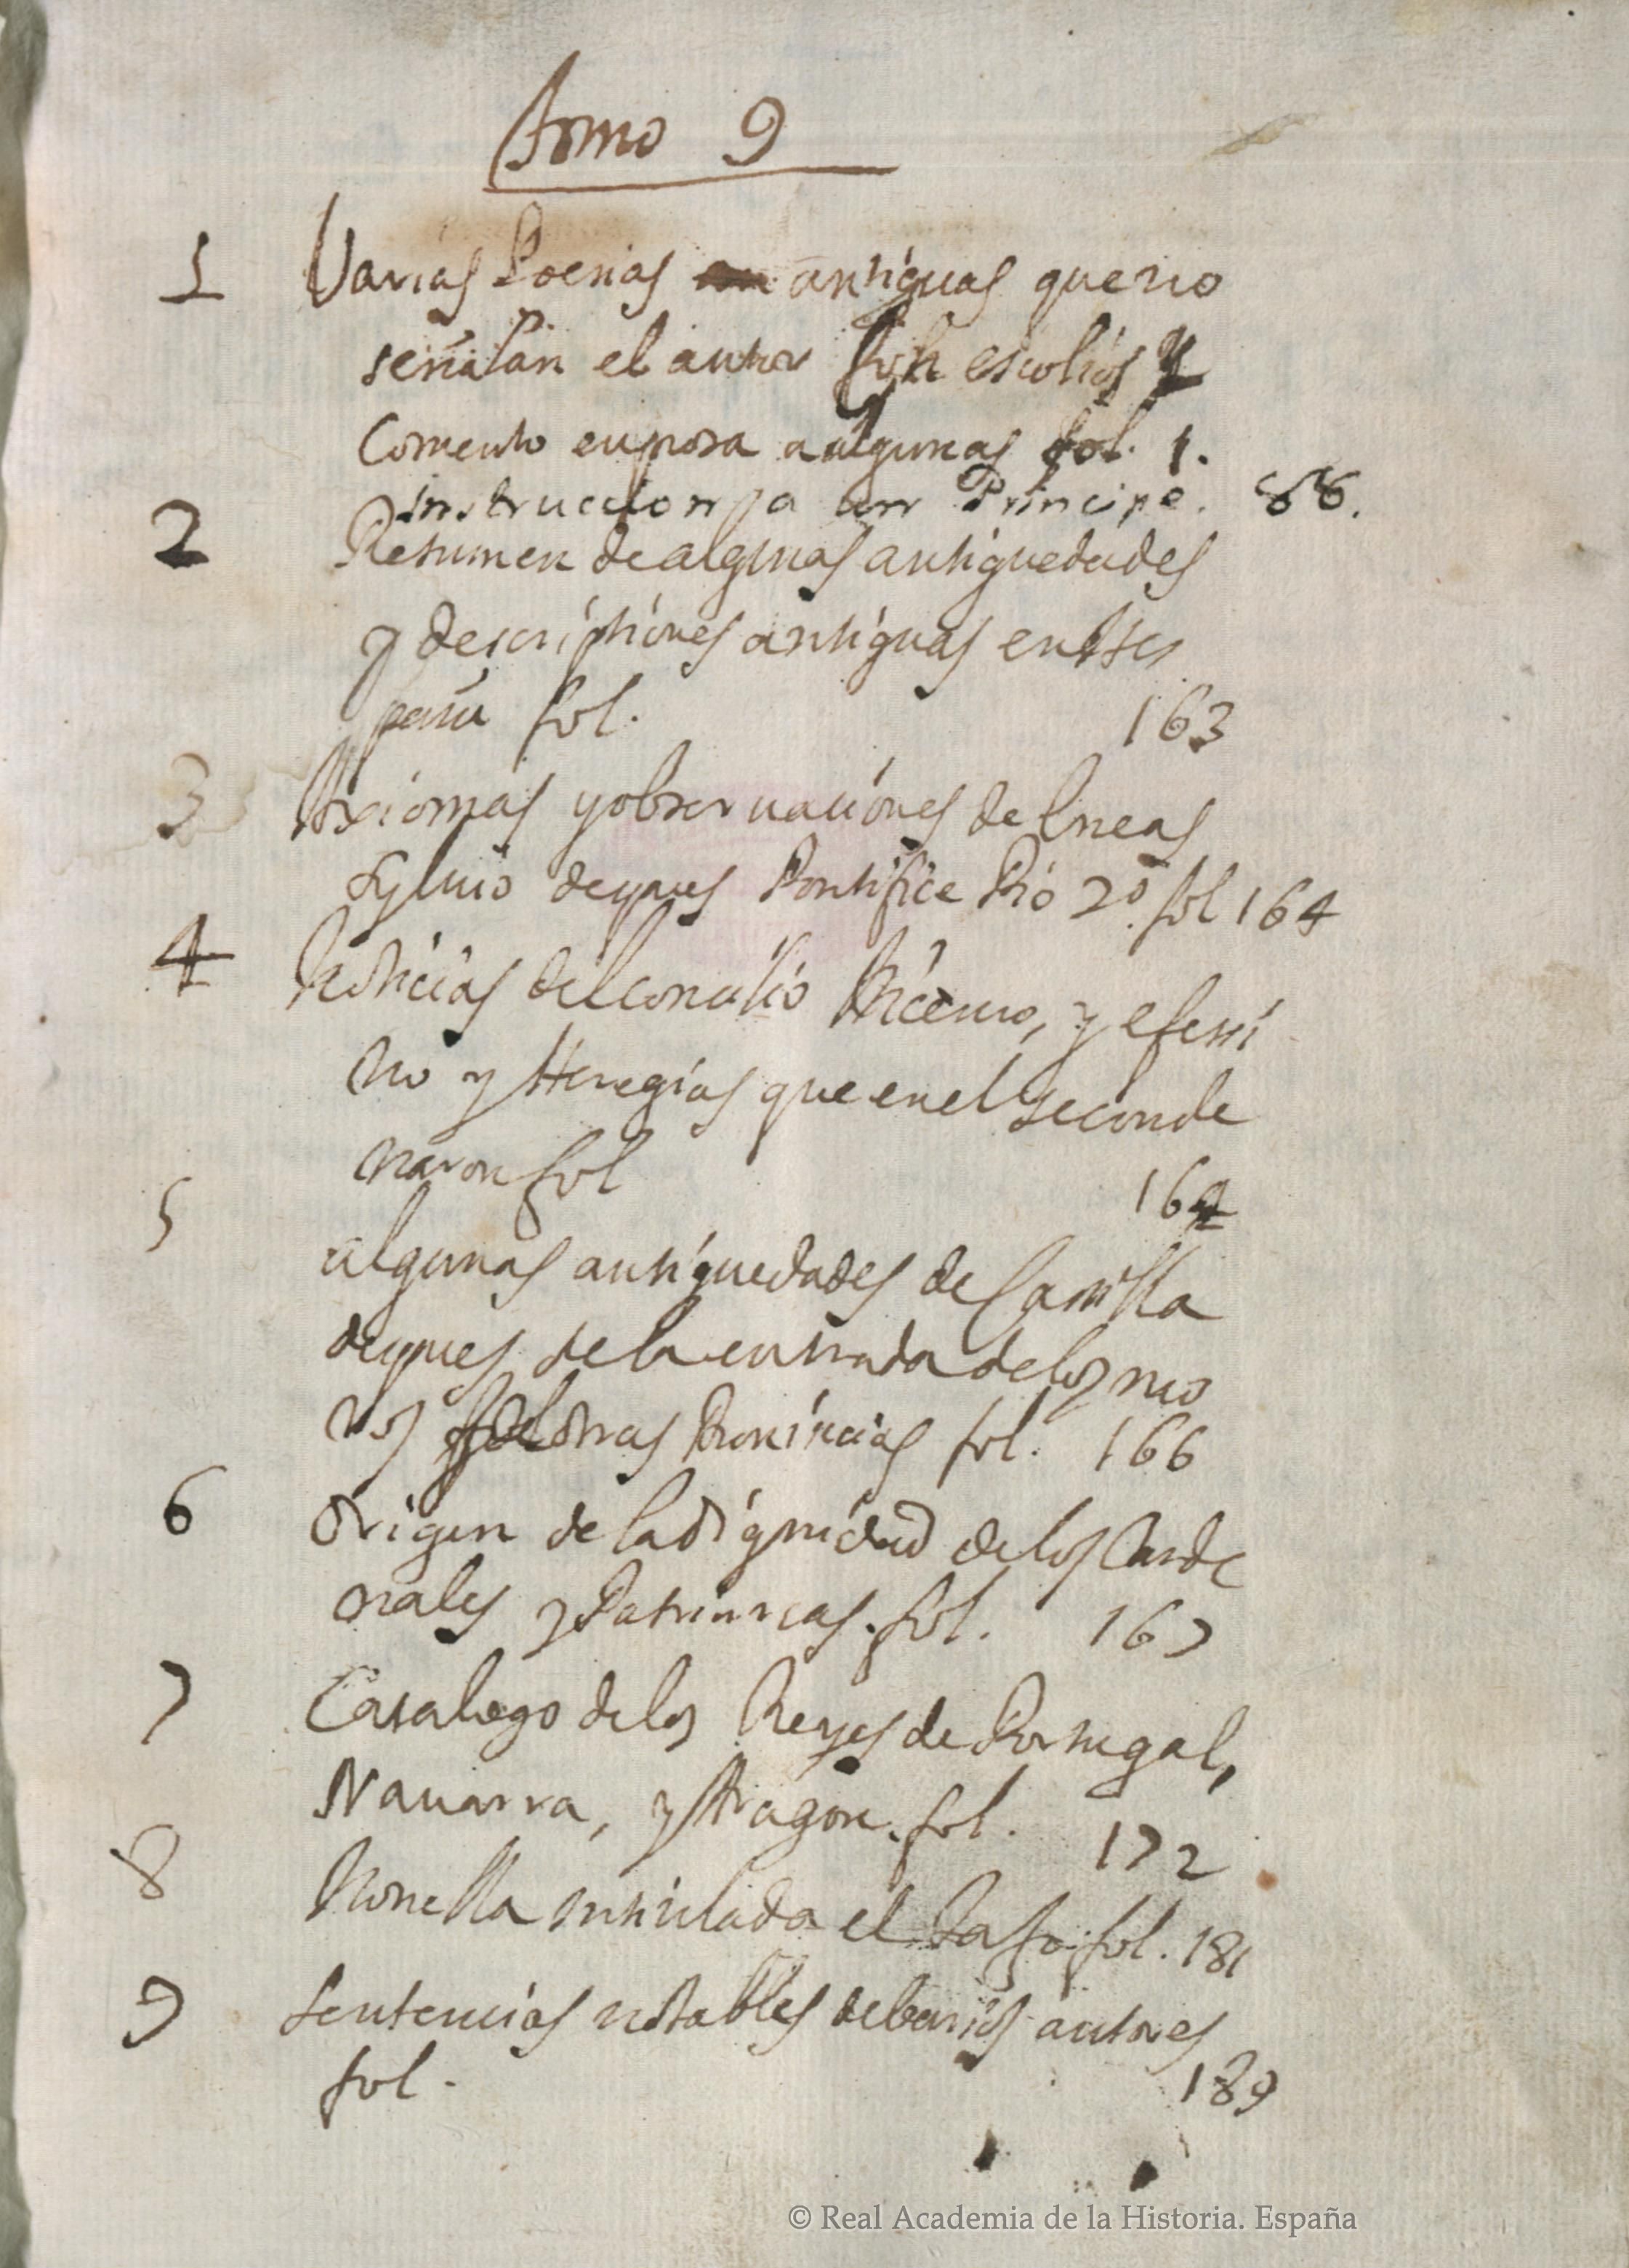 tomo 9
1 Varias Poesias antiguas que no
señalan el autor con escolios y
Comento en prosa a algunas fol. 1.
instruccion a un Principe. 86.
2 Resumen de algunas antiguedades
y descriptiones antiguas en Es
paña fol. 163
3 Axiomas y obseruaciones de Eneas
Syluio despues Pontifice Pio 2º. fol 164
4 Noticias del concilio Niceno, y efessi
no y Heregias que en el se conde
naron fol 164
5 algunas antiguedades de Castilla
despues de la entrada de los mo
ros otras Prouincias fol. 166
6 Origen de la dignidad de los Carde
nales y Patriarcas. fol. 167
7 Catalogo de los Reyes de Portugal,
Nauarra, y Aragon. fol. 172
8 Nouella intitulada el fol. 181
9 Sentencias notables de barios autores
fol. 189
© Real Academia de la Historia. España